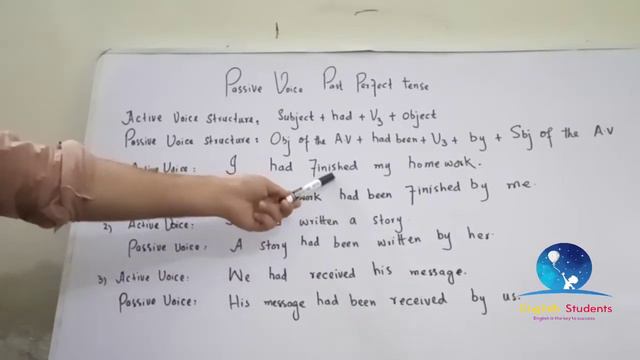 Passive Voice Past Perfect tense
Active Voice Structure, Subject + had + V3 + object
Passive Voice structure: Obj of the A.V + had been + V3 + by + Sbj of the A.V
Voice: I had Finished my homework.
work had been Finished by me.
2) Active Voice: written a story.
Passive Voice: A story had been written by her.
3) Active Voice: We had received his message.
Passive Voice: His message had been received by us.
English Students
English is the key to success